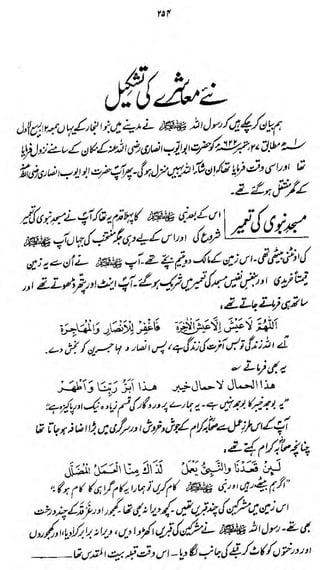 ۲۵۴
نئے معاشرے کی تشکیل
ہم بیان کر چکے ہیں کہ رسول اللہ ﷺ نے مدینے میں بنو النجار کے یہاں جمعہ ۱۲ ربیع الاول
۱ھ مطابق ۲۷ ستمبر ۶۲۲ء کو حضرت ابو ایوب انصاری رضی اللہ عنہ کے مکان کے سامنے نزول فرمایا
تھا اور اسی وقت فرمایا تھا کہ ان شاء اللہ یہیں منزل ہوگی۔ پھر آپ حضرت ابو ایوب انصاری رضی اللہ عنہ
کے گھر منتقل ہو گئے تھے۔
مسجد نبوی کی تعمیر
اس کے بعد نبی ﷺ کا پہلا قدم یہ تھا کہ آپ نے مسجد نبوی کی تعمیر
شروع کی اور اس کے لیے وہی جگہ منتخب کی جہاں آپ
کی اونٹنی بیٹھی تھی۔ اس زمین کے مالک دو یتیم بچے تھے۔ آپ ﷺ نے اُن سے یہ زمین
قیمتاً خریدی اور بنفسِ نفیس مسجد کی تعمیر میں شریک ہو گئے۔ آپ اینٹ اور پتھر ڈھوتے تھے اور
ساتھ ہی فرماتے جاتے تھے:
اَللّٰهُمَّ لَا عَيْشَ إِلَّا عَيْشُ الْآخِرَة فَاغْفِرْ لِلْأَنْصَارِ وَالْمُهَاجِرَة
"اے اللہ زندگی تو بس آخرت کی زندگی ہے، پس انصار و مہاجرین کو بخش دے۔
یہ بھی فرماتے ؎
هذا الحمال لاحمال خيبر هذا أبر ربنا وأطهر
"یہ بوجھ خیبر کا بوجھ نہیں ہے۔ یہ ہمارے پروردگار کی قسم زیادہ نیک اور پاکیزہ ہے"
آپ کے اس طرزِ عمل سے صحابہ کرام کے جوش و خروش اور سرگرمی میں بڑا اضافہ ہو جاتا تھا
چنانچہ صحابہ کرام کہتے تھے:
لَئِنْ قَعَدْنَا وَالنَّبِيُّ يَعْمَلُ لَذَاكَ مِنَّا الْعَمَلُ الْمُضَلَّلُ
"اگر ہم بیٹھے رہیں اور نبی ﷺ کام کریں تو ہمارا یہ کام گمراہی کا کام ہوگا"
اس زمین میں مشرکین کی چند قبریں تھیں۔ کچھ ویرانہ بھی تھا۔ کھجور اور غرقد کے چند درخت
بھی تھے۔ رسول اللہ ﷺ نے مشرکین کی قبریں اکھڑوا دیں، ویرانہ برابر کرا دیا، اور کھجوروں
اور درختوں کو کاٹ کر قبلے کی جانب لگا دیا۔ اس وقت قبلہ بیت المقدس تھا۔